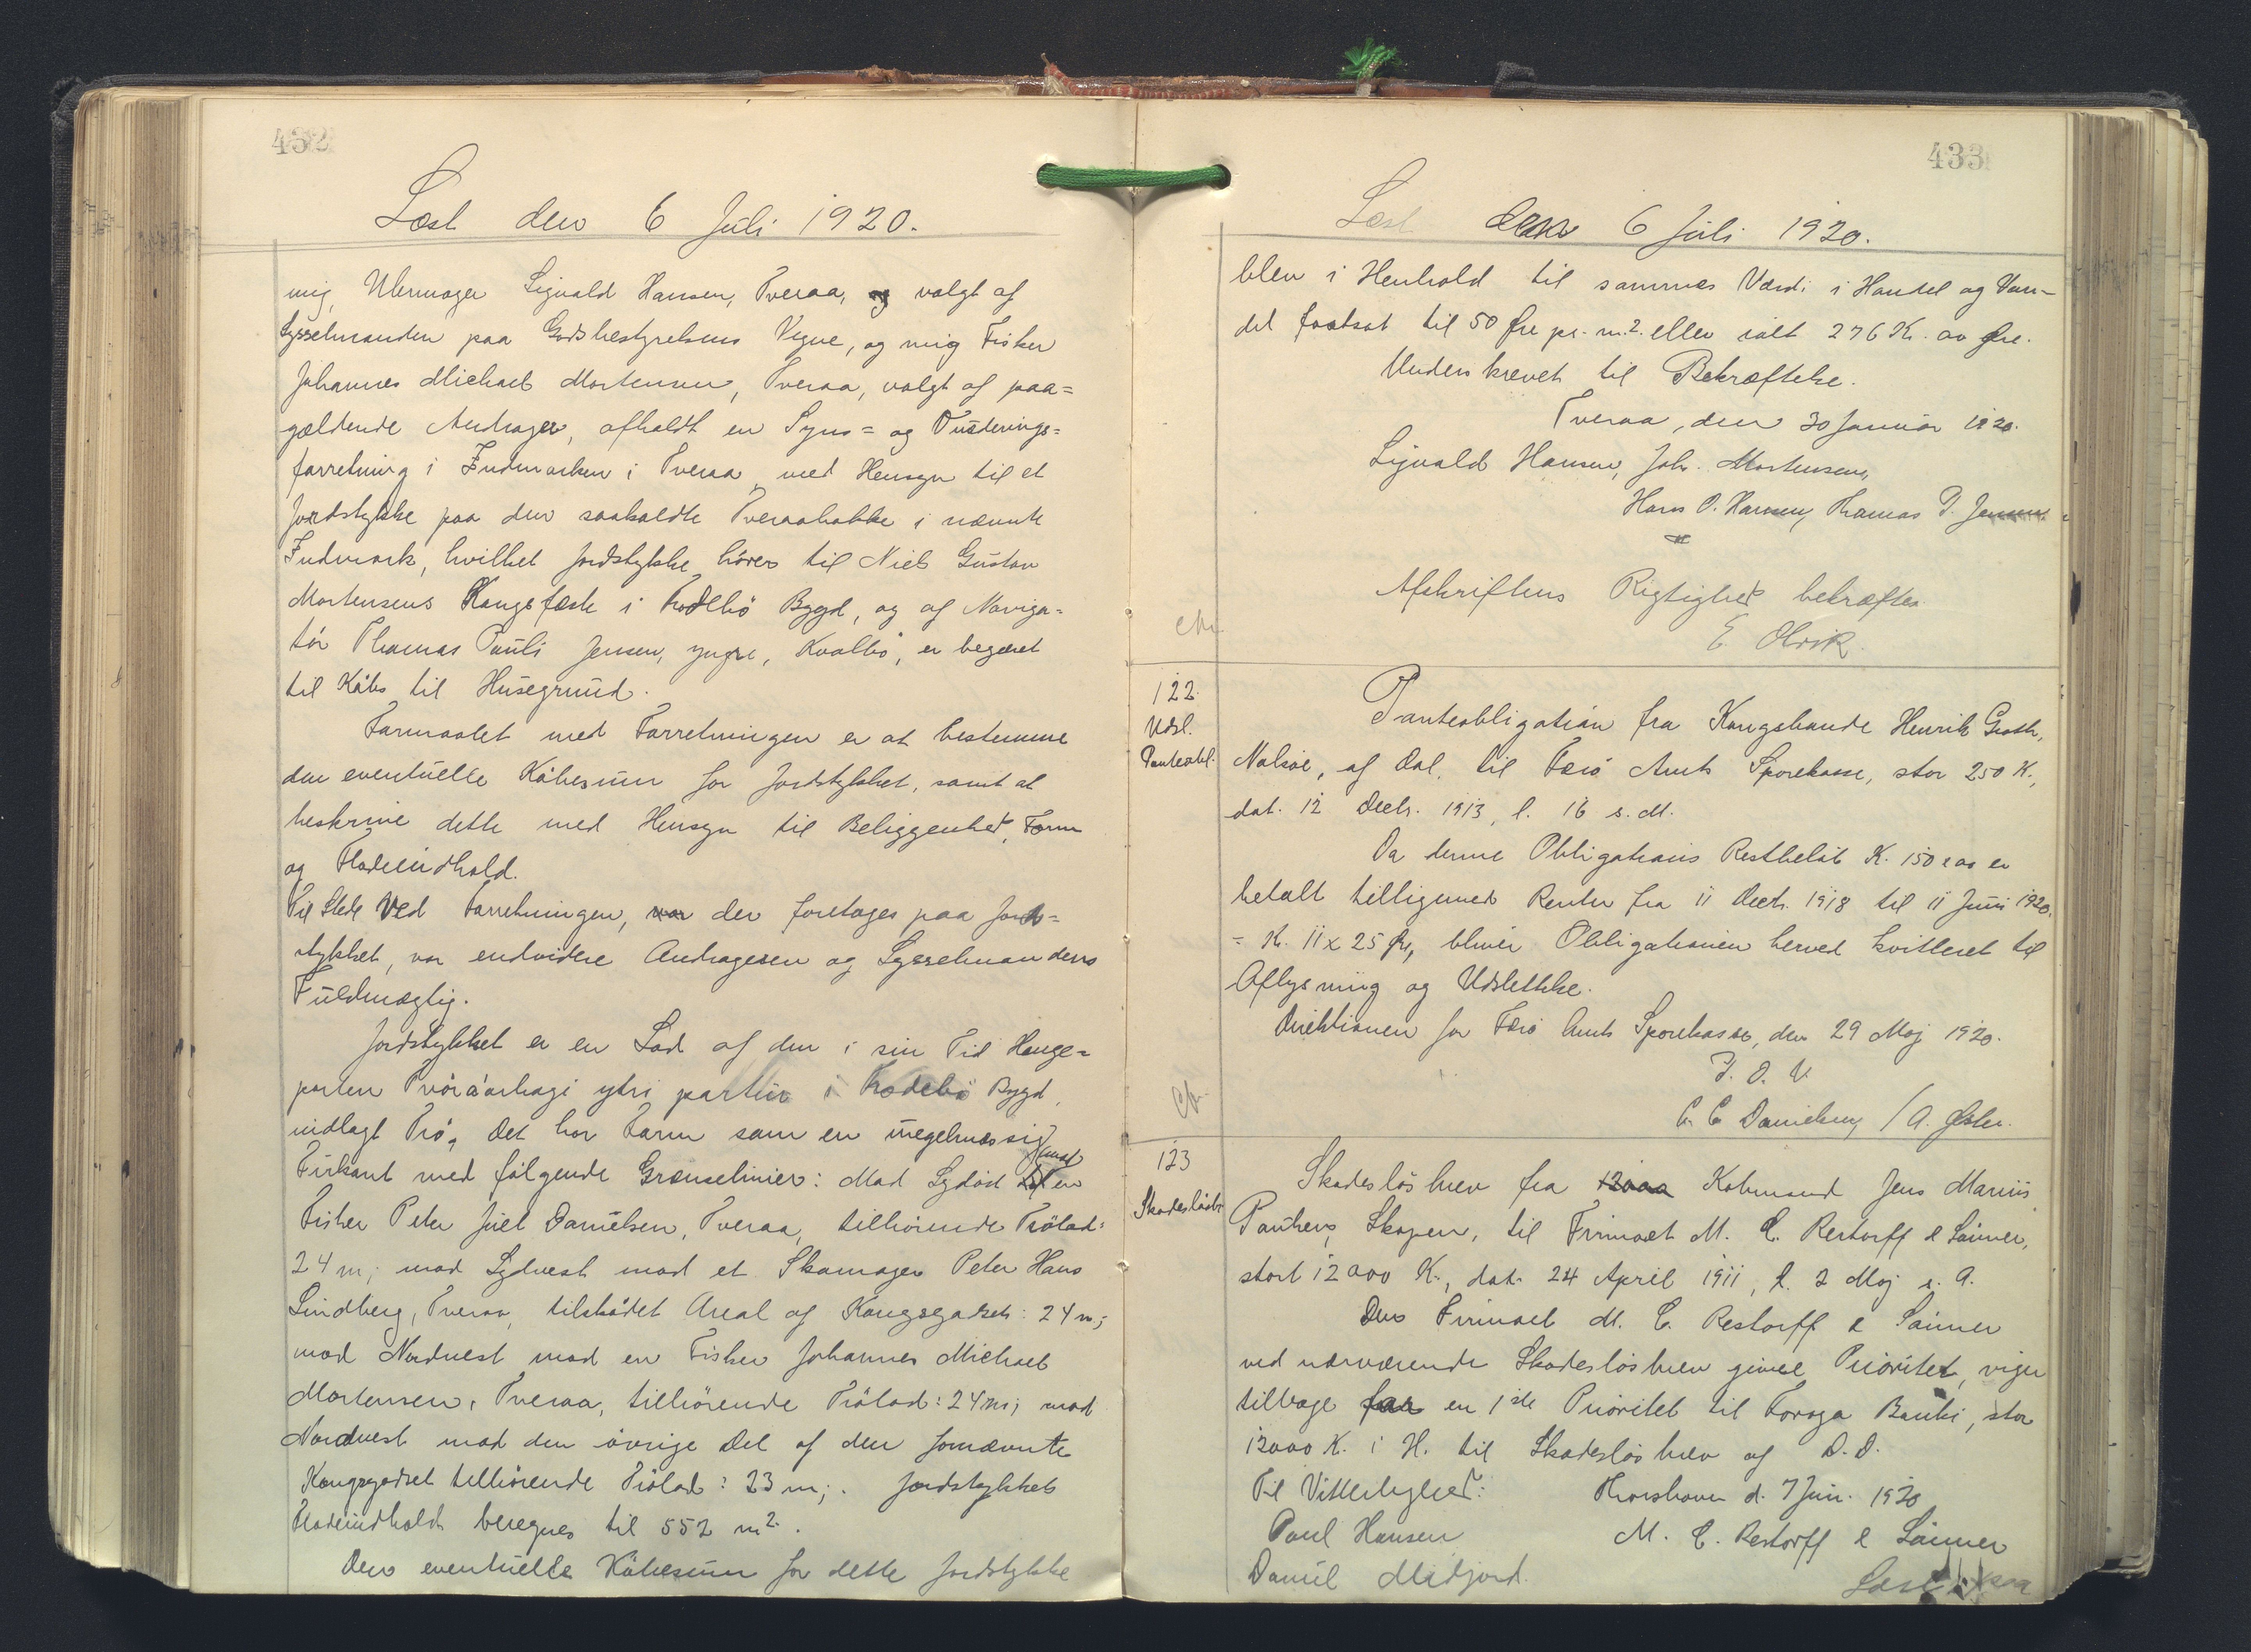 432
Læst den 6 Juli 1920.
mig, Uhrmager Sigvald Hansen, Tveraa, og valgt af
Sysselmanden paa Godsbestyrelsens Vegne, og mig Fisker
Johannes Michael Mortensen, Tveraa, valgt af paa=
gældende Andrager, afholdt en Syns= og Vurderings=
forretning i Indmarken i Tveraa med Hensyn til et
Jordstykke paa den saakaldte Tveraabakke i nævnte
Indmark, hvilket Jordstykke hører til Niels Gustav
Mortensens Kongsfæste i Frodebø Bygd, og af Naviga=
tør Thomas Pauli Jensen, yngre, Kvalbø, er begæret
til Købs til Husegrund.
Formaalet med Forretningen er at bestemme
den eventuelle Købesum for Jordstykket, samt at
beskrive dette med Hensyn til Beliggenhed, Form
og Fladeindhold.
Til Stede ved Forretningen, der foretages paa Jord=
stykket, var endvidere Andrageren og Sysselmandens
Fuldmægtig.
Jordstykket er en Lod af den i sin Tid Hauge=
parten Tvøráarhagi ytri partur i Frodebø Bygd,
udlagt Trø, Det har Form som en uregelmæssig
Firkant med følgende Grænselinier: Mod Sydøst mod en
Fisker Peter Juel Danielsen, Tveraa, tilhørende Trølod:
24 m; mod Sydvest mod et Skomager Peter Hans
Lindberg, Tveraa, tilskødet Areal af Kongsgodset: 24 m;
mod Nordvest mod en Fisker Johannes Michael
Mortensen, Tveraa, tilhørende Trølod: 24 m; mod
Nordvest mod den øvrige Del af den fornævnte
Kongsgodset tilhørende Trølod: 23 m;. Jordstykkets
Fladeindhold beregnes til 552 m².
Den eventuelle Købesum for dette Jordstykke
433
Læst den 6 Juli 1920.
blev i Henhold til sammes Værdi i Handel og Van=
del fastsat til 50 Øre pr. m². eller ialt 276 K. 00 Øre.
Underskrevet til Bekræftelse.
Tveraa, den 30 Januar 1920.
Sigvald Hansen, Joh. Mortensen,
Hans O. Hansen, Thomas P. Jensen
Afskriftens Rigtighed bekræftes
E Olrik.
122.
Udsl.
Panteobl.
Panteobligation fra Kongsbonde Henrik Groth,
Nolsøe, af Dal, til Færø Amts Sparekasse, stor 250 K.,
dat. 12 Decbr. 1913, l. 16 s. M.
Da denne Obligations Restbeløb K. 150 x 00 er
betalt tilligemed Renter fra 11 Decbr. 1918 til 11 Juni 1920.
= K. 11 x 25 Øre, bliver Obligationen herved kvitteret til
Aflysning og Udslettelse.
Direktionen for Færø Amts Sparekasse, den 29 Maj 1920.
P. D. V
C. C Danielsen, / A. Øster.
123
Skadesløsbr
Skadesløsbrev fra Købmand Jens Marius
Poulsen, Skopen, til Firmaet M. C. Restorff & Sønner,
stort 12000 K., dat. 24 April 1911, l. 2 Maj s. A.
Den Firmaet M. C. Restorff & Sønner
ved nærværende Skadesløsbrev givne Prioritet, viger
tilbage for en 1ste Prioritet til Føroya Banki, stor
12000 K. i H. til Skadesløsbrev af D.D.
Til Vitterlighed:
Thorshavn d. 7 Juni. 1920
Poul Hansen
M. C. Restorff & Sønner
Daniel Midjord.